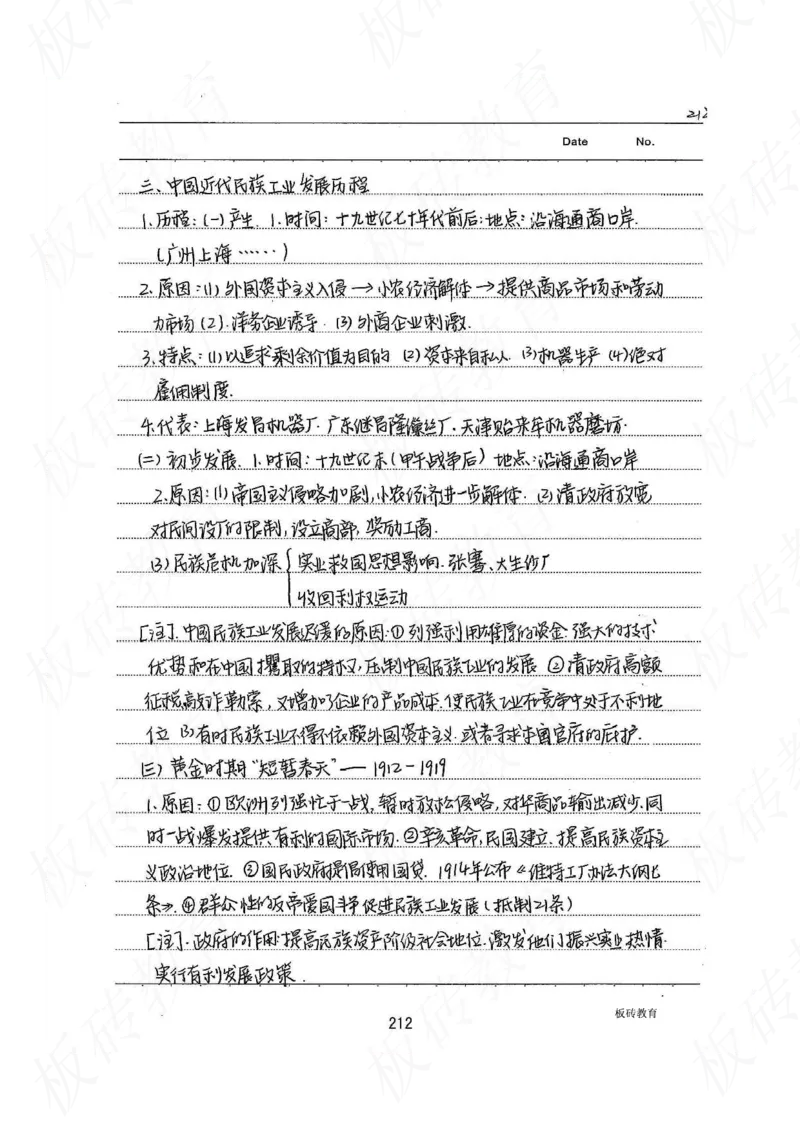 212
Date No.
三、中国近代民族工业发展历程
1.历程:(一)产生. 1.时间:十九世纪七十年代前后:地点:沿海通商口岸.
(广州上海……)
2.原因:(1)外国资本主义入侵→小农经济解体→提供商品市场和劳动
力市场(2).洋务企业诱导.(3)外商企业刺激.
3.特点:(1)以追求剩余价值为目的 (2)资本来自私人 (3)机器生产 (4)绝对
雇佣制度.
4.代表:上海发昌机器厂.广东继昌隆缫丝厂.天津贻来牟机器磨坊.
(二)初步发展. 1.时间:十九世纪末(甲午战争后) 地点:沿海通商口岸
2.原因:(1)帝国主义侵略加剧,小农经济进一步解体.(2)清政府放宽
对民间设厂的限制,设立商部,奖励工商.
(3)民族危机加深{实业救国思想影响.张謇、大生纱厂
收回利权运动
[注].中国民族工业发展迟缓的原因:①列强利用雄厚的资金.强大的技术
优势和在中国攫取的特权,压制中国民族工业的发展 ②清政府高额
征税,高敲诈勒索,又增加了企业的产品成本.使民族工业在竞争中处于不利地
位 (3)有时民族工业不得不依赖外国资本主义.或者寻求本国官府的庇护.
(三)黄金时期“短暂春天”—1912-1919
1.原因:①欧洲列强忙于一战,暂时放松侵略,对华商品输出减少.同
时一战爆发提供有利的国际市场.②辛亥革命,民国建立.提高民族资本主
义政治地位.③国民政府提倡使用国货.1914年公布《维持工厂办法大纲七
条》.④群众性的反帝爱国斗争促进民族工业发展(抵制21条)
[注].政府的作用:提高民族资产阶级社会地位.激发他们振兴实业热情.
实行有利发展政策.
212
板砖教育